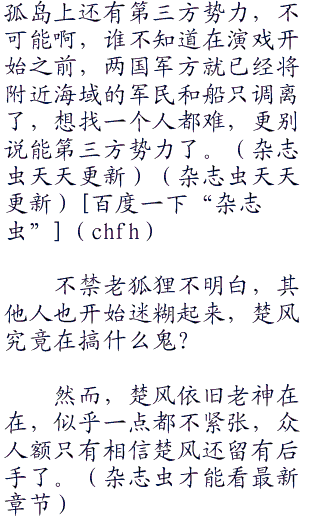 孤岛上还有第三方势力，不
可能啊，谁不知道在演戏开
始之前，两国军方就已经将
附近海域的军民和船只调离
了，想找一个人都难，更别
说能第三方势力了。（杂志
虫天天更新）（杂志虫天天
更新）[百度一下“杂志
虫”]（chfh）
不禁老狐狸不明白，其
他人也开始迷糊起来，楚风
究竟在搞什么鬼？
然而，楚风依旧老神在
在，似乎一点都不紧张，众
人额只有相信楚风还留有后
手了。（杂志虫才能看最新
章节）